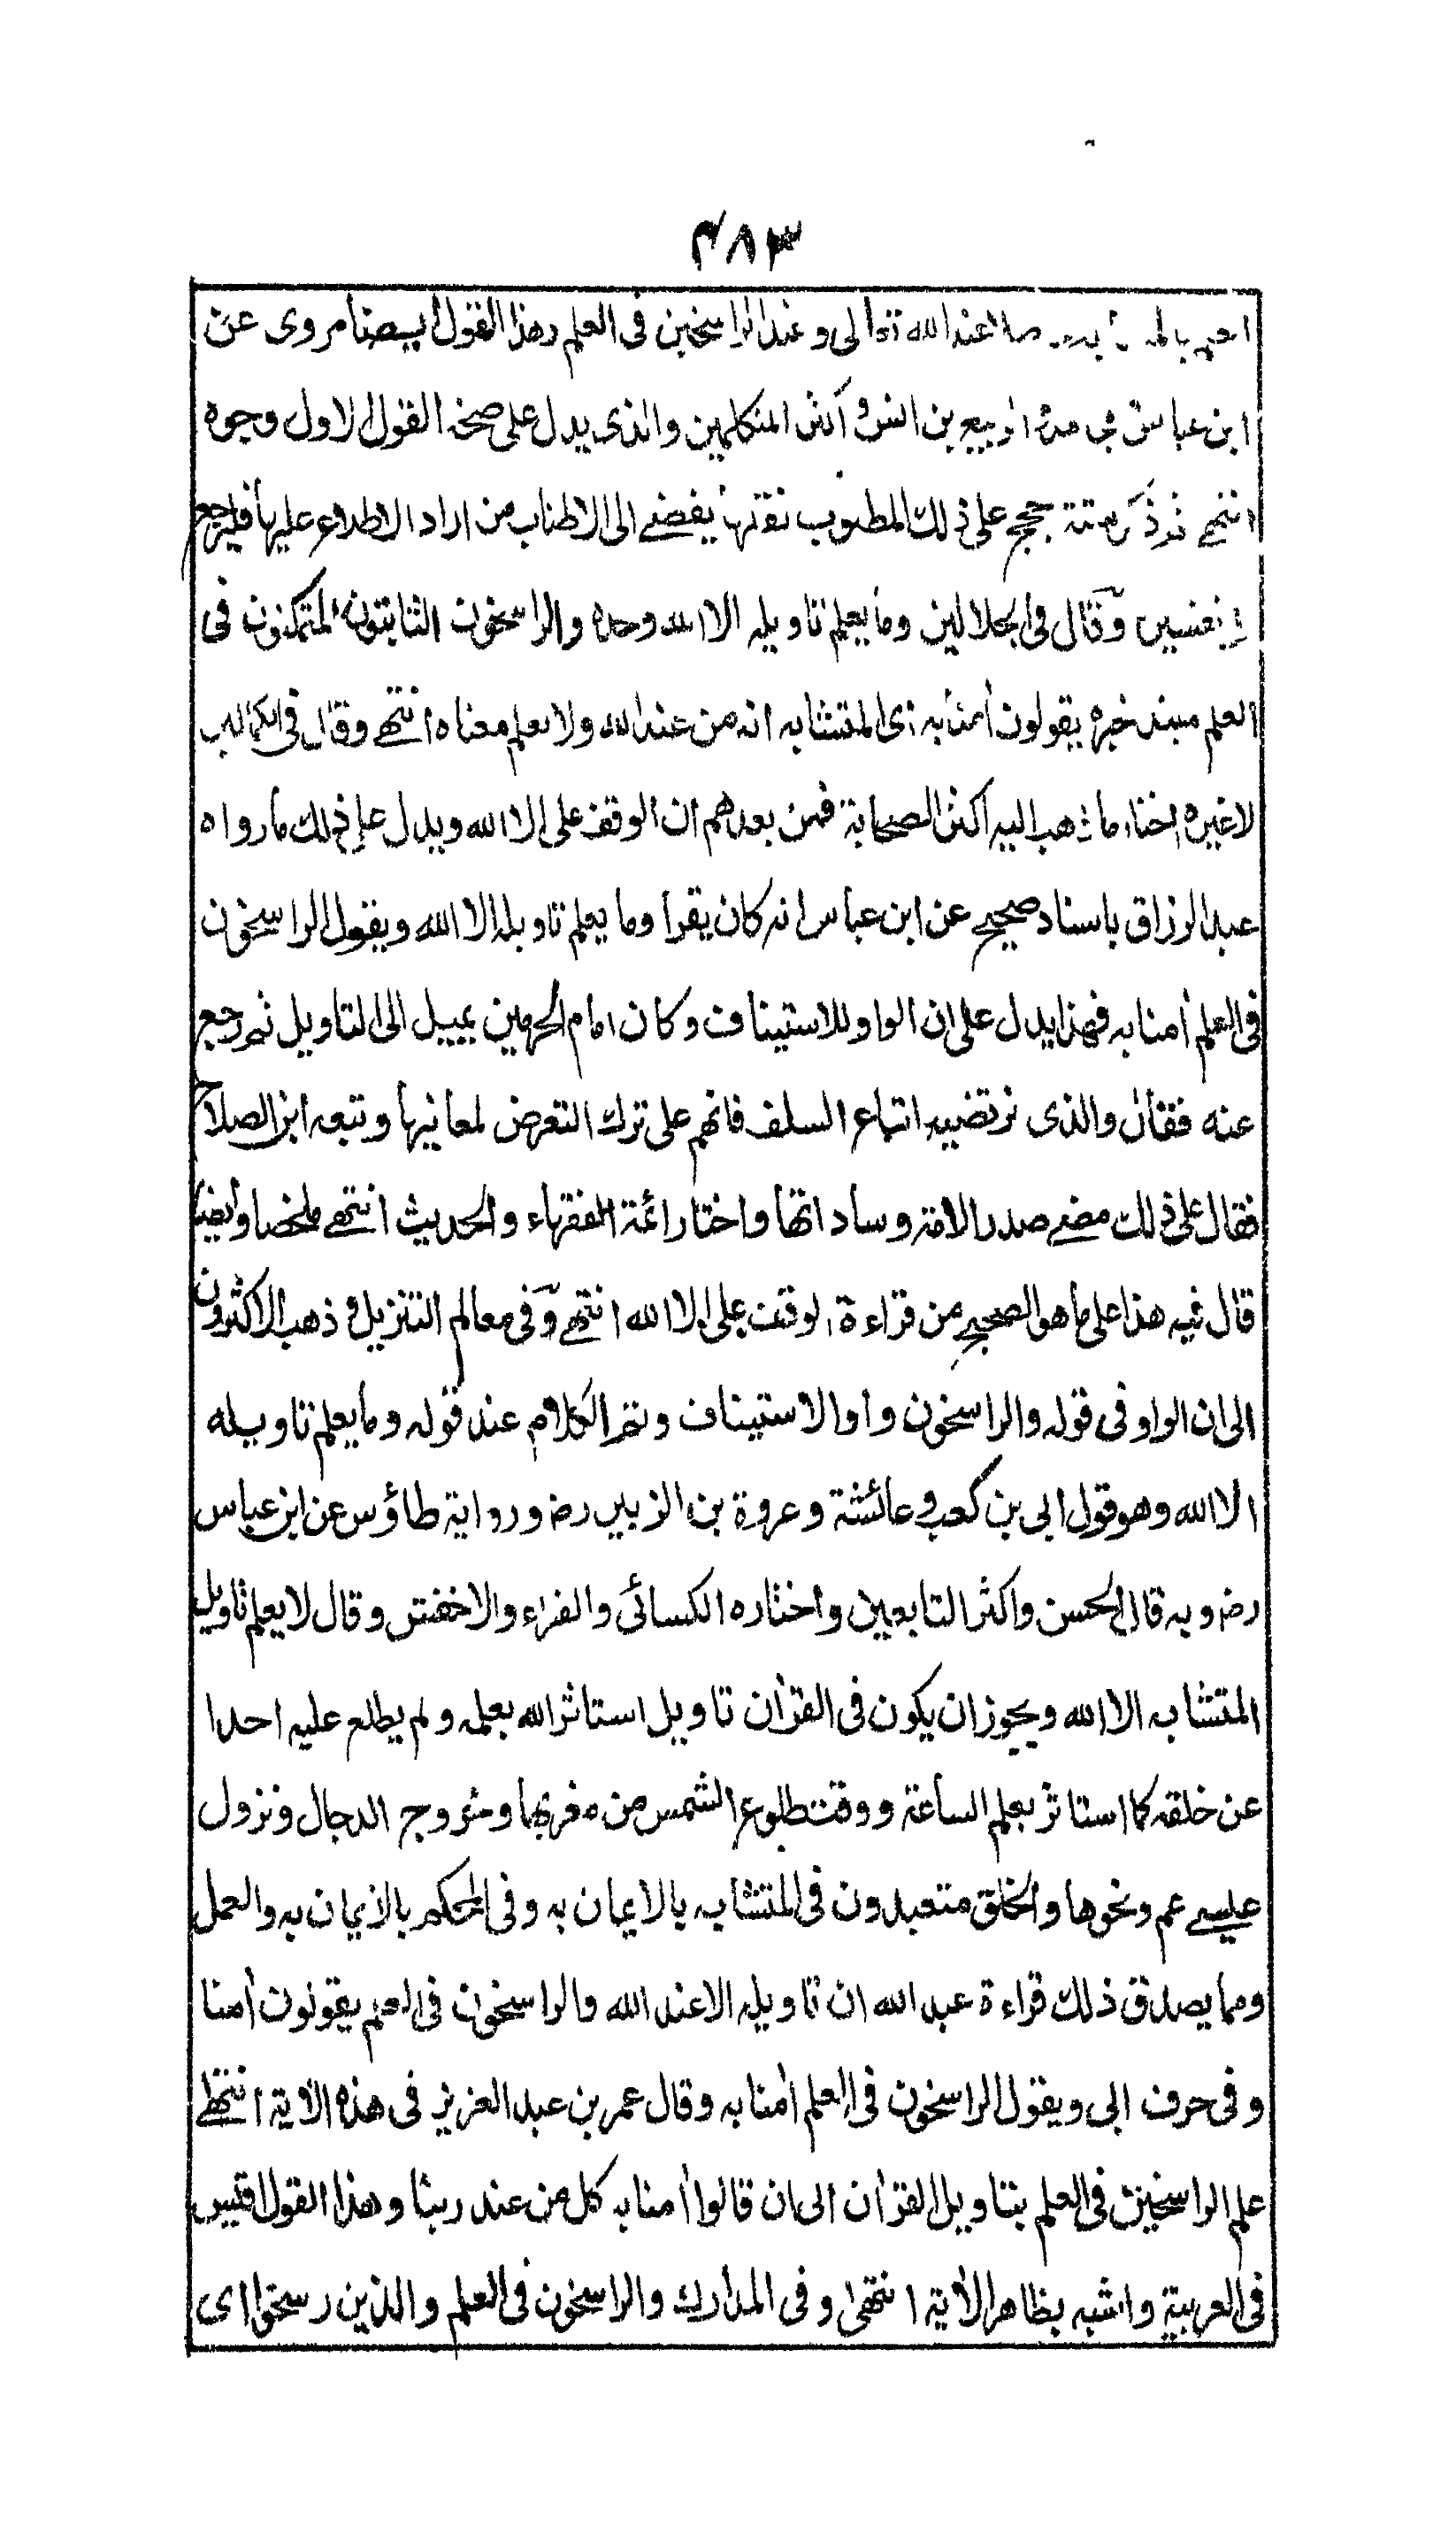 ٤٨٣
العلم بالمتشابه حاصلا عند الله تعالى وعند الراسخين فى العلم وهذا القول أيضا مروى عن
ابن عباس ومجاهد والربيع بن انس وأكثر المتكلمين والذى يدل على صحة القول الاول وجوه
انتهى فذكر ستة حجج على ذلك المطلوب نقلها يفضے الى الاطناب من اراد الاطلاع عليها فليراجع
تفسيره وقال فى الجلالين وما يعلم تاويله الا الله وحده والراسخون الثابتون المتمكنون فى
العلم مبتدا خبره يقولون أمنا به اى المتشابه انه من عند الله ولا يعلم معناه انتهے وقال فى الكمالين
لا غيره اختار ما ذهب اليه اكثر الصحابة فمن بعدهم ان الوقف على الا الله ويدل على ذلك ما رواه
عبد الرزاق باسناد صحيح عن ابن عباس انه كان يقرأ وما يعلم تاويله الا الله ويقول الراسخون
فى العلم أمنا به فهذا يدل على ان الواو للاستيناف وكان امام الحرمين يميل الى التاويل ثم رجع
عنه فقال والذى نرتضيه اتباع السلف فانهم على ترك التعرض لمعانيها وتبعه ابن الصلاح
فقال على ذلك مضے صدر الامة وساداتها واختار ائمة الفقهاء والحديث انتهے ملخصا وأيضا
قال فيه هذا على ما هو الصحيح من قراءة الوقف على الا الله انتهے وفى معالم التنزيل و ذهب الاكثرون
الى ان الواو فى قوله والراسخون واو الاستيناف وتم الكلام عند قوله وما يعلم تاويله
الا الله وهو قول ابى بن كعب و عائشة وعروة بن الزبير رضـ ورواية طاؤس عن ابن عباس
رضـ وبه قال الحسن واكثر التابعين واختاره الكسائى والفراء والاخفش وقال لا يعلم تاويل
المتشابه الا الله ويجوز ان يكون فى القرأن تاويل استاثر الله بعلمه ولم يطلع عليه احدا
عن خلقه كما استاثر بعلم الساعة ووقت طلوع الشمس من مغربها وخروج الدجال ونزول
عيسے عم ونحوها والخلق متعبدون فى المتشابه بالايمان به وفى المحكم بالايمان به والعمل
ومما يصدق ذلك قراءة عبد الله ان تاويله الا عند الله والراسخون فى العلم يقولون أمنا
وفى حرف ابى ويقول الراسخون فى العلم امنا به وقال عمر بن عبد العزيز فى هذه الأية انتهے
علم الراسخين فى العلم بتاويل القرأن الى ان قالوا أمنا به كل من عند ربنا وهذا القول اقيس
فى العربية واشبه بظاهر الأية انتهى وفى المدارك والراسخون فى العلم والذين رسخوا اى